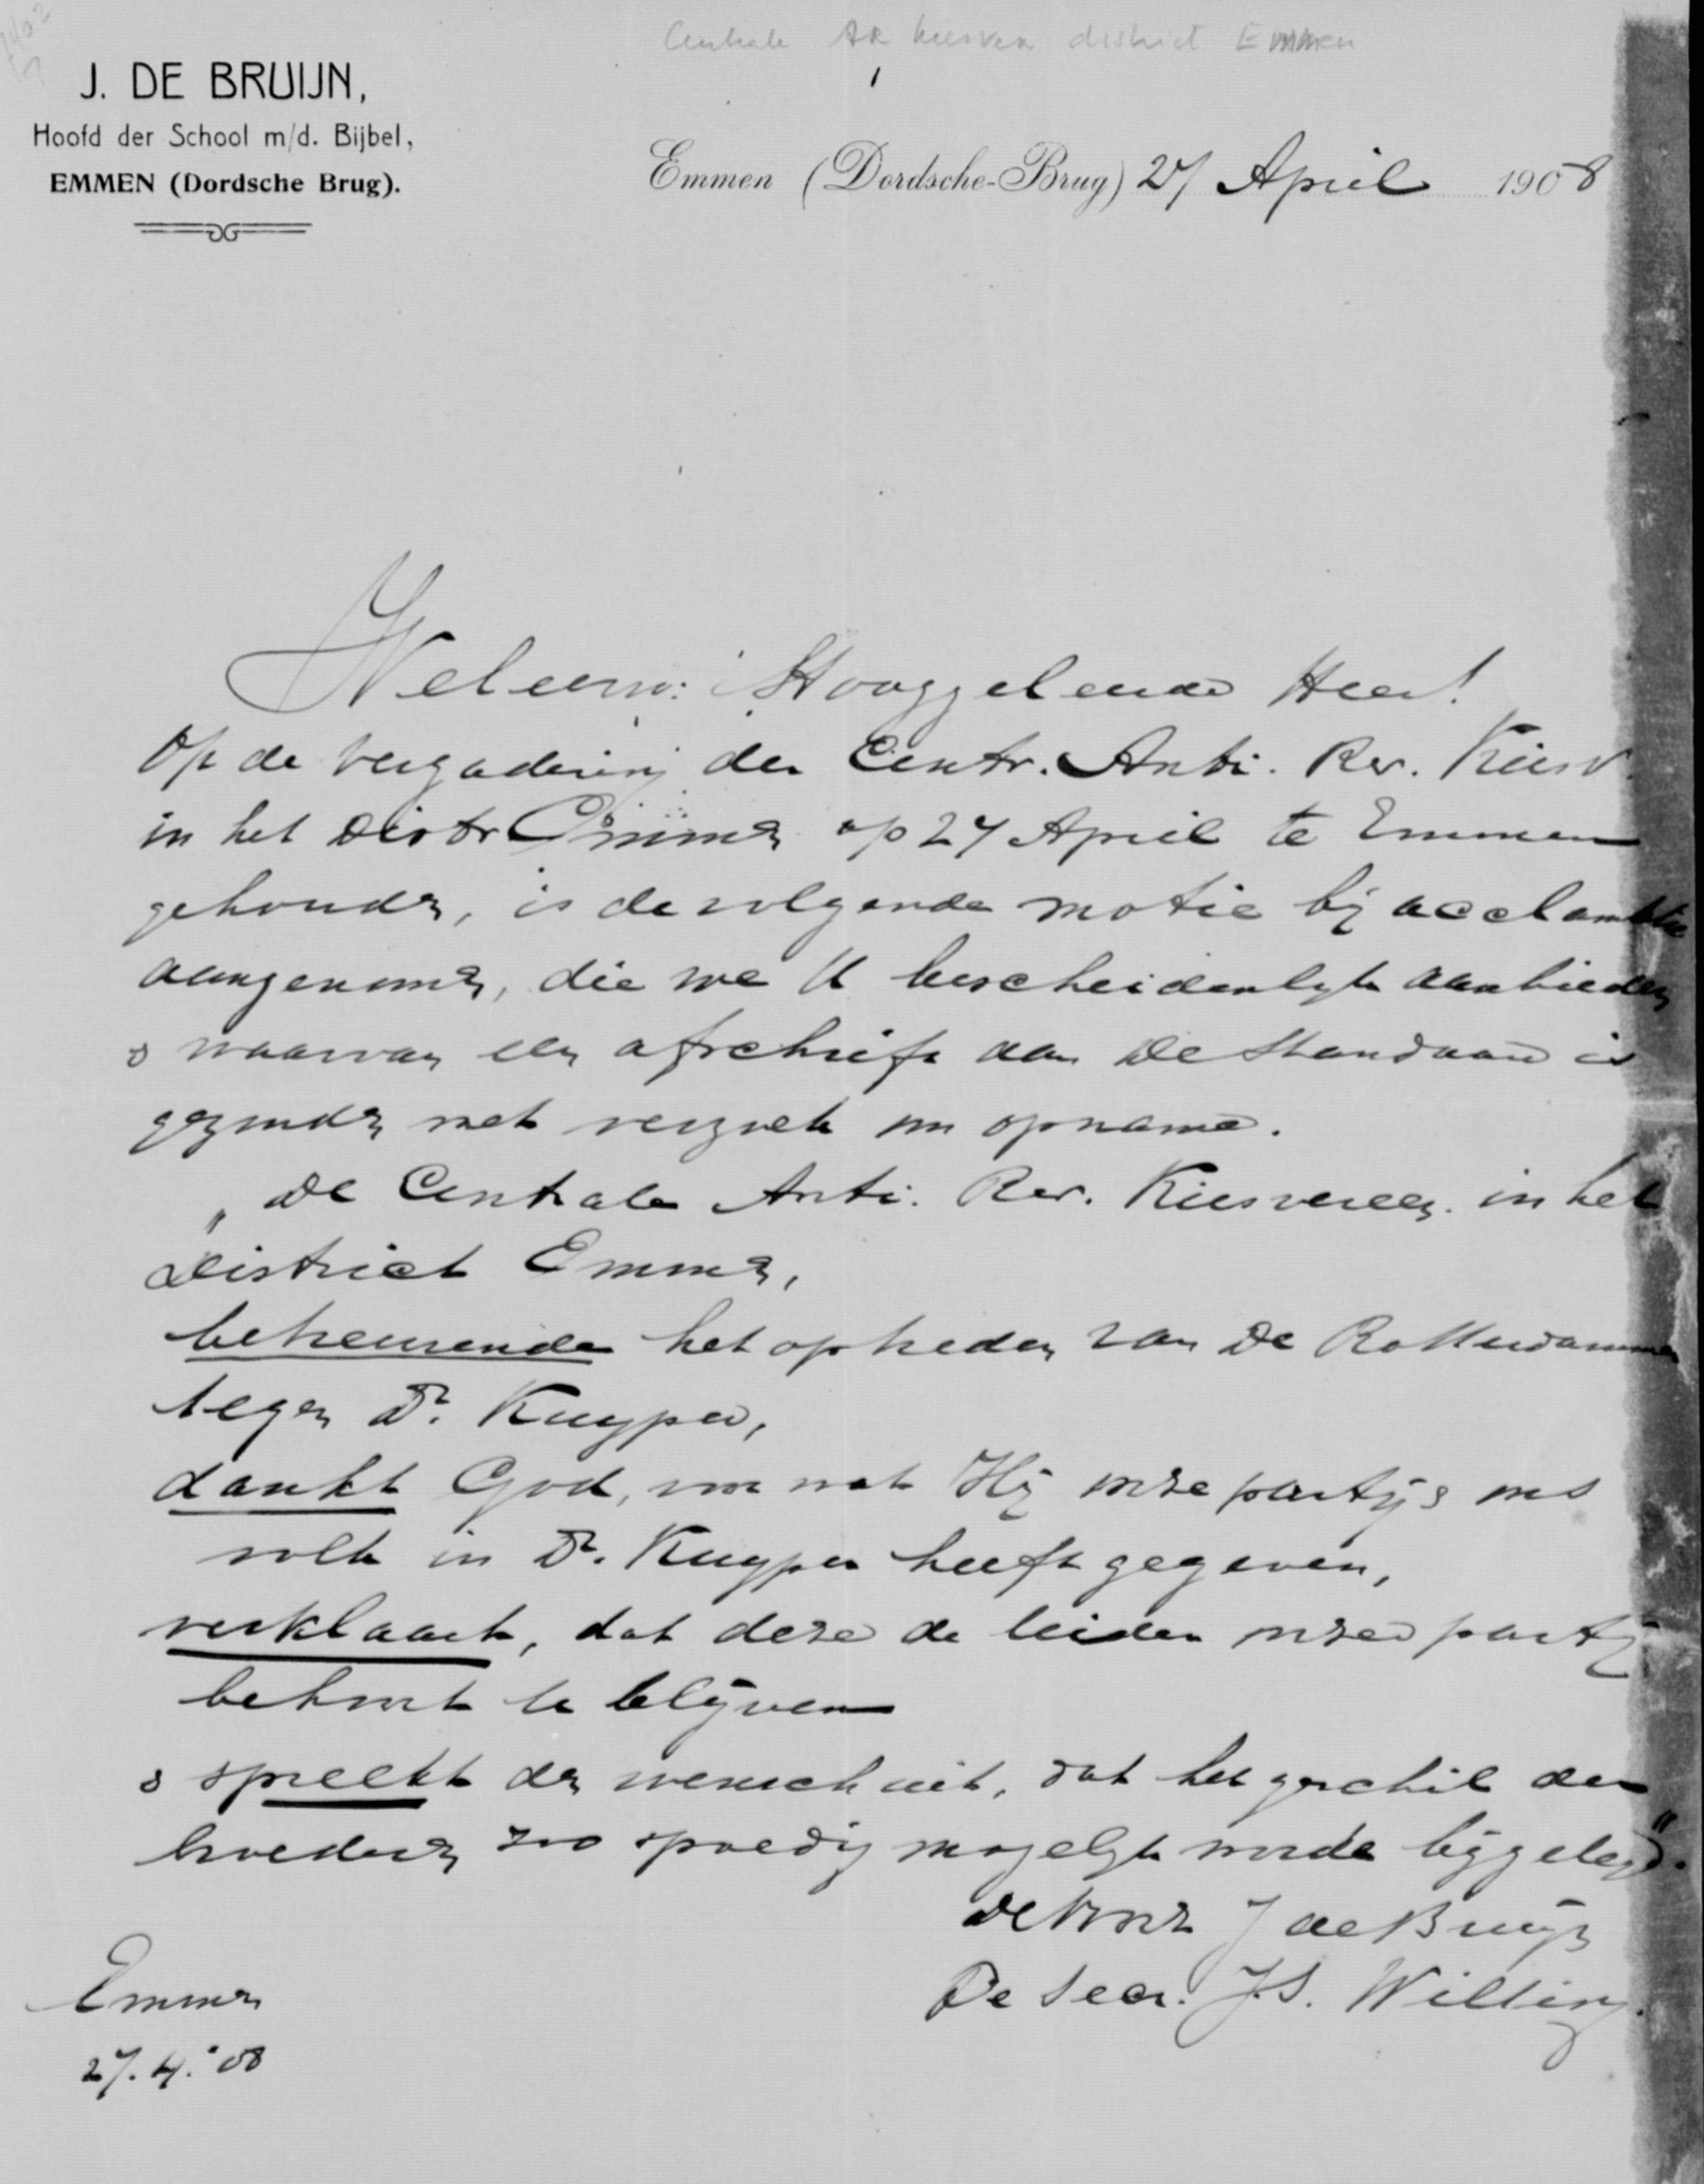 Centrale AR kiesver district Emmen
J. DE BRUIJN,
Hoofd der School m/d. Bijbel,
EMMEN (Dordsche Brug).
Emmen (Dordsche-Brug) 27 April 1908
Weleerw: Hooggeleerde Heer!
Op de vergadering der Centr. Anti. Rev. Kiesv.
in het Distr Emmen op 27 April te Emmen
gehouden, is de volgende motie bij acclamatie
aangenomen, die we U bescheidenlijk aanbieden
& waarvan een afschrift aan De Standaard is
gezonden met verzoek om opname.
„De Centrale Anti. Rev. Kiesvereen. in het
District Emmen,
betreurende het optreden van De Rotterdammer
tegen Dr. Kuyper,
dankt God, voor wat Hij onze partij & ons
volk in Dr. Kuyper heeft gegeven,
verklaart, dat deze de leider onzer partij
behoort te blijven
& spreekt den wensch uit, dat het geschil der
broederen zoo spoedig mogelijk worde bijgelegd."
De Voorz J de Bruijn
De Secr. J.S. Willing.
Emmen
27.4.'08